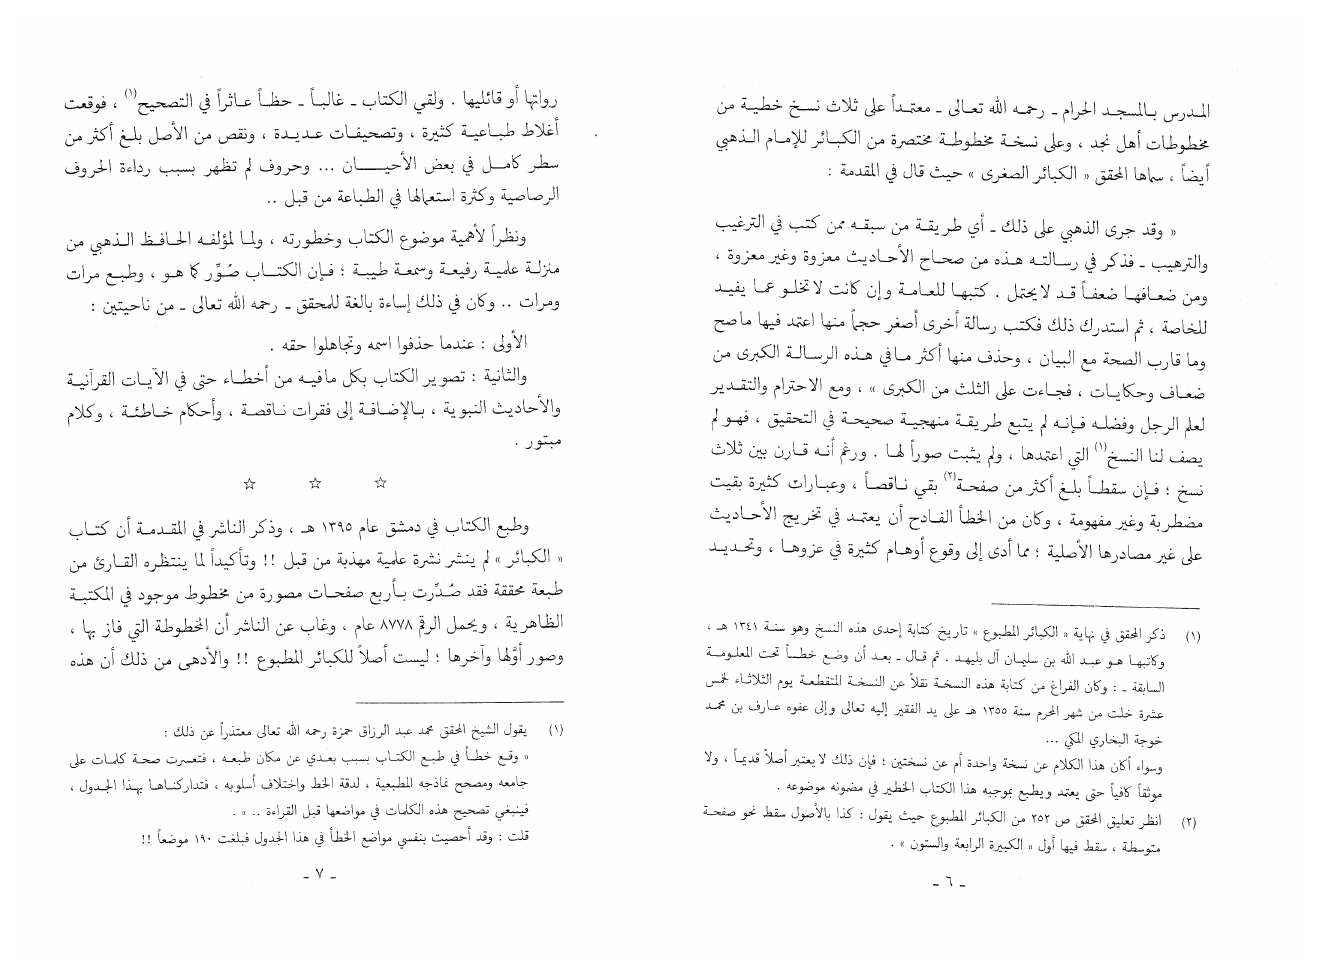 المدرس بالمسجد الحرام ـ رحمه الله تعالى ـ معتمداً على ثلاث نسخ خطية من
مخطوطات أهل نجد ، وعلى نسخة مخطوطة مختصرة من الكبائر للإمام الذهبي
أيضاً ، سماها المحقق « الكبائر الصغرى » حيث قال في المقدمة :
« وقد جرى الذهبي على ذلك ـ أي طريقة من سبقه ممن كتب في الترغيب
والترهيب ـ فذكر في رسالته هذه من صحاح الأحاديث معزوة وغير معزوة ،
ومن ضعافها ضعفاً قد لا يحتمل . كتبها للعامة وإن كانت لا تخلو عما يفيد
للخاصة ، ثم استدرك ذلك فكتب رسالة أخرى أصغر حجماً منها اعتمد فيها ماصح
وما قارب الصحة مع البيان ، وحذف منها أكثر مافي هذه الرسالة الكبرى من
ضعاف وحكايات ، فجاءت على الثلث من الكبرى » ، ومع الاحترام والتقدير
لعلم الرجل وفضله فإنه لم يتبع طريقة منهجية صحيحة في التحقيق ، فهو لم
يصف لنا النسخ(١) التي اعتمدها ، ولم يثبت صوراً لها . ورغم أنه قارن بين ثلاث
نسخ ؛ فإن سقطاً بلغ أكثر من صفحة(٢) بقي ناقصاً ، وعبارات كثيرة بقيت
مضطربة وغير مفهومة ، وكان من الخطأ الفادح أن يعتمد في تخريج الأحاديث
على غير مصادرها الأصلية ؛ مما أدى إلى وقوع أوهام كثيرة في عزوها ، وتحديد
(١) ذكر المحقق في نهاية « الكبائر المطبوع » تاريخ كتابة إحدى هذه النسخ وهو سنة ١٣٤١ هـ ،
وكاتبها هو عبد الله بن سليمان آل بليهد . ثم قال ـ بعد أن وضع خطاً تحت المعلومة
السابقة ـ : وكان الفراغ من كتابة هذه النسخة نقلاً عن النسخة المتقطعة يوم الثلاثاء لخمس
عشرة خلت من شهر المحرم سنة ١٣٥٥ هـ على يد الفقير إليه تعالى وإلى عفوه عارف بن محمد
خوجة البخاري المكي ...
وسواء أكان هذا الكلام عن نسخة واحدة أم عن نسختين ؛ فإن ذلك لا يعتبر أصلاً قديماً ، ولا
موثقاً كافياً حتى يعتمد ويطبع بموجبه هذا الكتاب الخطير في مضمونه موضوعه .
(٢) انظر تعليق المحقق ص ٢٥٢ من الكبائر المطبوع حيث يقول : كذا بالأصول سقط نحو صفحة
متوسطة ، سقط فيها أول « الكبيرة الرابعة والستون » .
ـ ٦ ـ
رواتها أو قائليها . ولقي الكتاب ـ غالباً ـ حظاً عاثراً في التصحيح(١) ، فوقعت
أغلاط طباعية كثيرة ، وتصحيفات عديدة ، ونقص من الأصل بلغ أكثر من
سطر كامل في بعض الأحيـــان ... وحروف لم تظهر بسبب رداءة الحروف
الرصاصية وكثرة استعمالها في الطباعة من قبل ..
ونظراً لأهمية موضوع الكتاب وخطورته ، ولما لمؤلفه الحافظ الذهبي من
منزلة علمية رفيعة وسمعة طيبة ؛ فإن الكتاب صُوِّر كما هو ، وطبع مرات
ومرات .. وكان في ذلك إساءة بالغة للمحقق ـ رحمه الله تعالى ـ من ناحيتين :
الأولى : عندما حذفوا اسمه وتجاهلوا حقه .
والثانية : تصوير الكتاب بكل مافيه من أخطاء حتى في الآيات القرآنية
والأحاديث النبوية ، بالإضافة إلى فقرات ناقصة ، وأحكام خاطئة ، وكلام
مبتور .
☆ ☆ ☆
وطبع الكتاب في دمشق عام ١٣٩٥ هـ ، وذكر الناشر في المقدمة أن كتاب
« الكبائر » لم ينشر نشرة علمية مهذبة من قبل !! وتأكيداً لما ينتظره القارئ من
طبعة محققة فقد صُدِّرت بأربع صفحات مصورة من مخطوط موجود في المكتبة
الظاهرية ، ويحمل الرقم ٨٧٧٨ عام ، وغاب عن الناشر أن المخطوطة التي فاز بها ،
وصور أوَّلها وآخرها ؛ ليست أصلاً للكبائر المطبوع !! والأدهى من ذلك أن هذه
(١) يقول الشيخ المحقق محمد عبد الرزاق حمزة رحمه الله تعالى معتذراً عن ذلك :
« وقع خطأ في طبع الكتاب بسبب بعدي عن مكان طبعه ، فتعسرت صحة كلمات على
جامعه ومصحح نماذجه المطبعية ، لدقة الخط واختلاف أسلوبه ، فتداركناها بهذا الجدول ،
فينبغي تصحيح هذه الكلمات في مواضعها قبل القراءة .. » .
قلت : وقد أحصيت بنفسي مواضع الخطأ في هذا الجدول فبلغت ١٩٠ موضعاً !!
ـ ٧ ـ